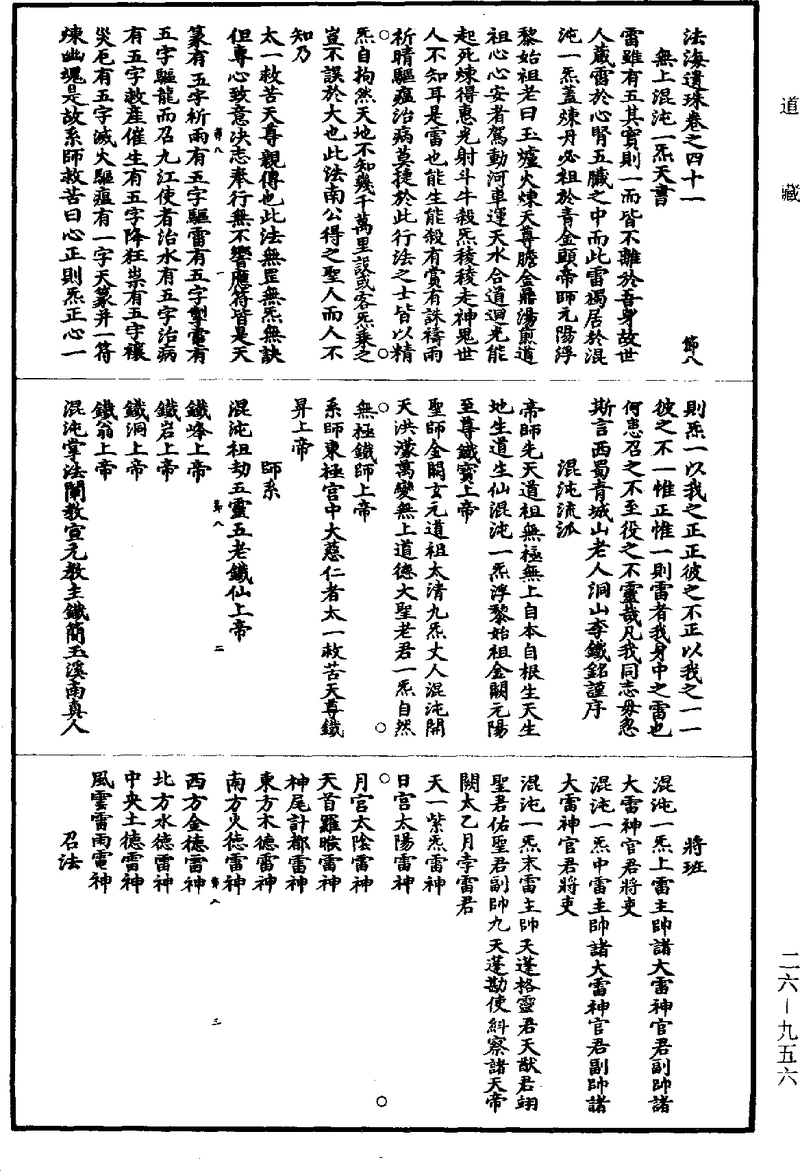 道藏
法海遺珠卷之四十一 節八
無上混沌一炁天書
雷雖有五其實則一而皆不離於吾身故世
人藏雷於心腎五臟之中而此雷獨居於混
沌一炁蓋煉丹必祖於青金顒帝師元陽浮
黎始祖老曰玉爐火煉天尊膽金鼎湯煎道
祖心心安者駕動河車運天水合道迴光能
起死煉得惠光射斗牛殺炁稜稜走神鬼世
人不知耳是雷也能生能殺有賞有誅禱雨
祈晴驅瘟治病莫捷於此行法之士皆以精
炁自拘然天地不知幾千萬里設或客炁乘之
豈不誤於大也此法南公得之聖人而人不
知乃
太一救苦天尊親傳也此法無罡無炁無訣
但專心致意决志奉行無不響應符皆是天
篆有五字祈雨有五字驅雷有五字掣電有
五字驅龍而召九江使者治水有五字治病
有五字救產催生有五字降狂祟有五字禳
災厄有五字滅火驅瘟有一字天篆并一符
煉幽魂是故系師救苦曰心正則炁正心一
則炁一以我之正正彼之不正以我之一一
彼之不一惟正惟一則雷者我身中之雷也
何患召之不至役之不靈哉凡我同志毋忽
斯言西蜀青城山老人洞山李鐵銘謹序
混沌流派
帝師先天道祖無極無上自本自根生天生
地生道生仙混沌一炁浮黎始祖金闕元陽
至尊鐵寶上帝
聖師金闕玄元道祖太清九炁丈人混沌開
天洪濛萬變無上道德大聖老君一炁自然
無極鐵師上帝
系師東極宫中大慈仁者太一救苦天尊鐵
昇上帝
師系
混沌祖劫五靈五老鐵仙上帝
鐵峰上帝
鐵岩上帝
鐵洞上帝
鐵翁上帝
混沌掌法闡教宣元教主鐵簡玉溪南真人
將班
混沌一炁上雷主帥諸大雷神官君副帥諸
大雷神官君將吏
混沌一炁中雷主帥諸大雷神官君副帥諸
大雷神官君將吏
混沌一炁末雷主帥天蓬格靈君天猷君翊
聖君佑聖君副帥九天蓬勘使糾察諸天帝
闕太乙月孛雷君
天一紫炁雷神
日宫太陽雷神
月宫太陰雷神
天首羅睺雷神
神尾計都雷神
東方木德雷神
南方火德雷神
西方金德雷神
北方水德雷神
中央土德雷神
風雲雷雨電神
召法
二六－九五六